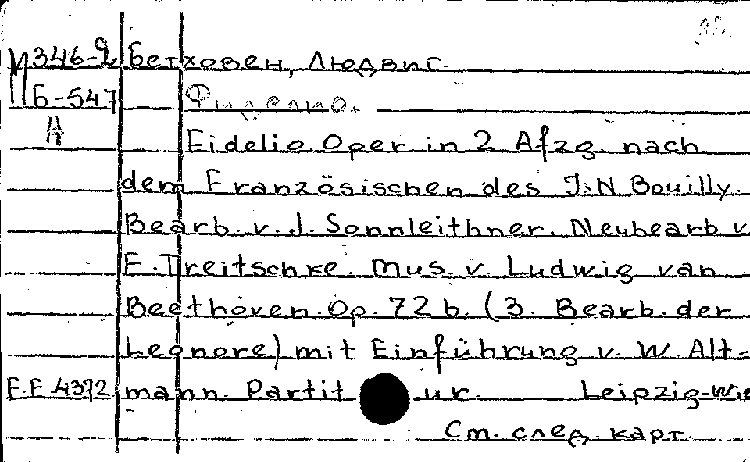 И346-2 Бетховен, Людвиг.
Б-547 Фиделио.
Н
Fidelio Oper in 2 Afzg. nach
dem Französischen des J.N Bouilly.
Bearb. v. J. Sonnleithner. Neubearb v
F. Treitschke. Mus. v. Ludwig van
Beethoven. Op. 72 b. (3. Bearb. der
Leonore) mit Einführung v. W. Alt=
E.E 4372 mann. Partit ur. Leipzig-Wie
См. след. карт.